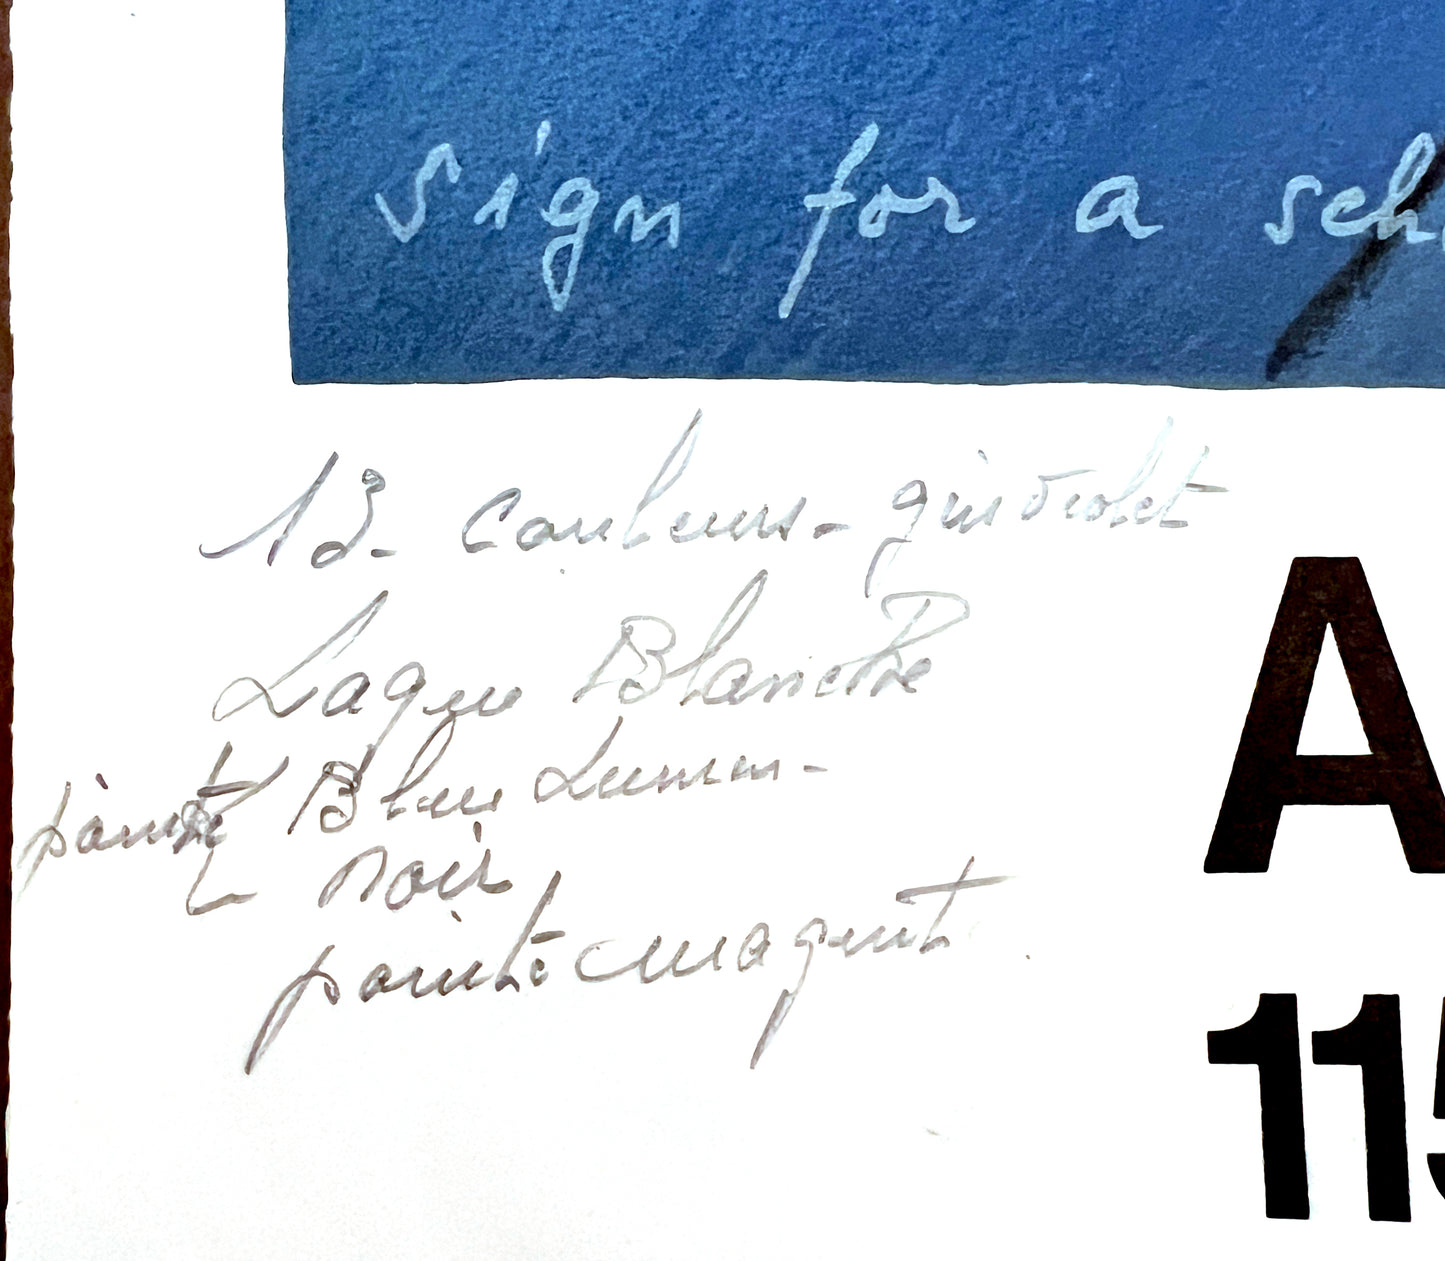 sign for a sch
13 - couleurs - gris violet
Laque Blanche
pointe Bleu Lumin -
noir
pointe magent
A
115